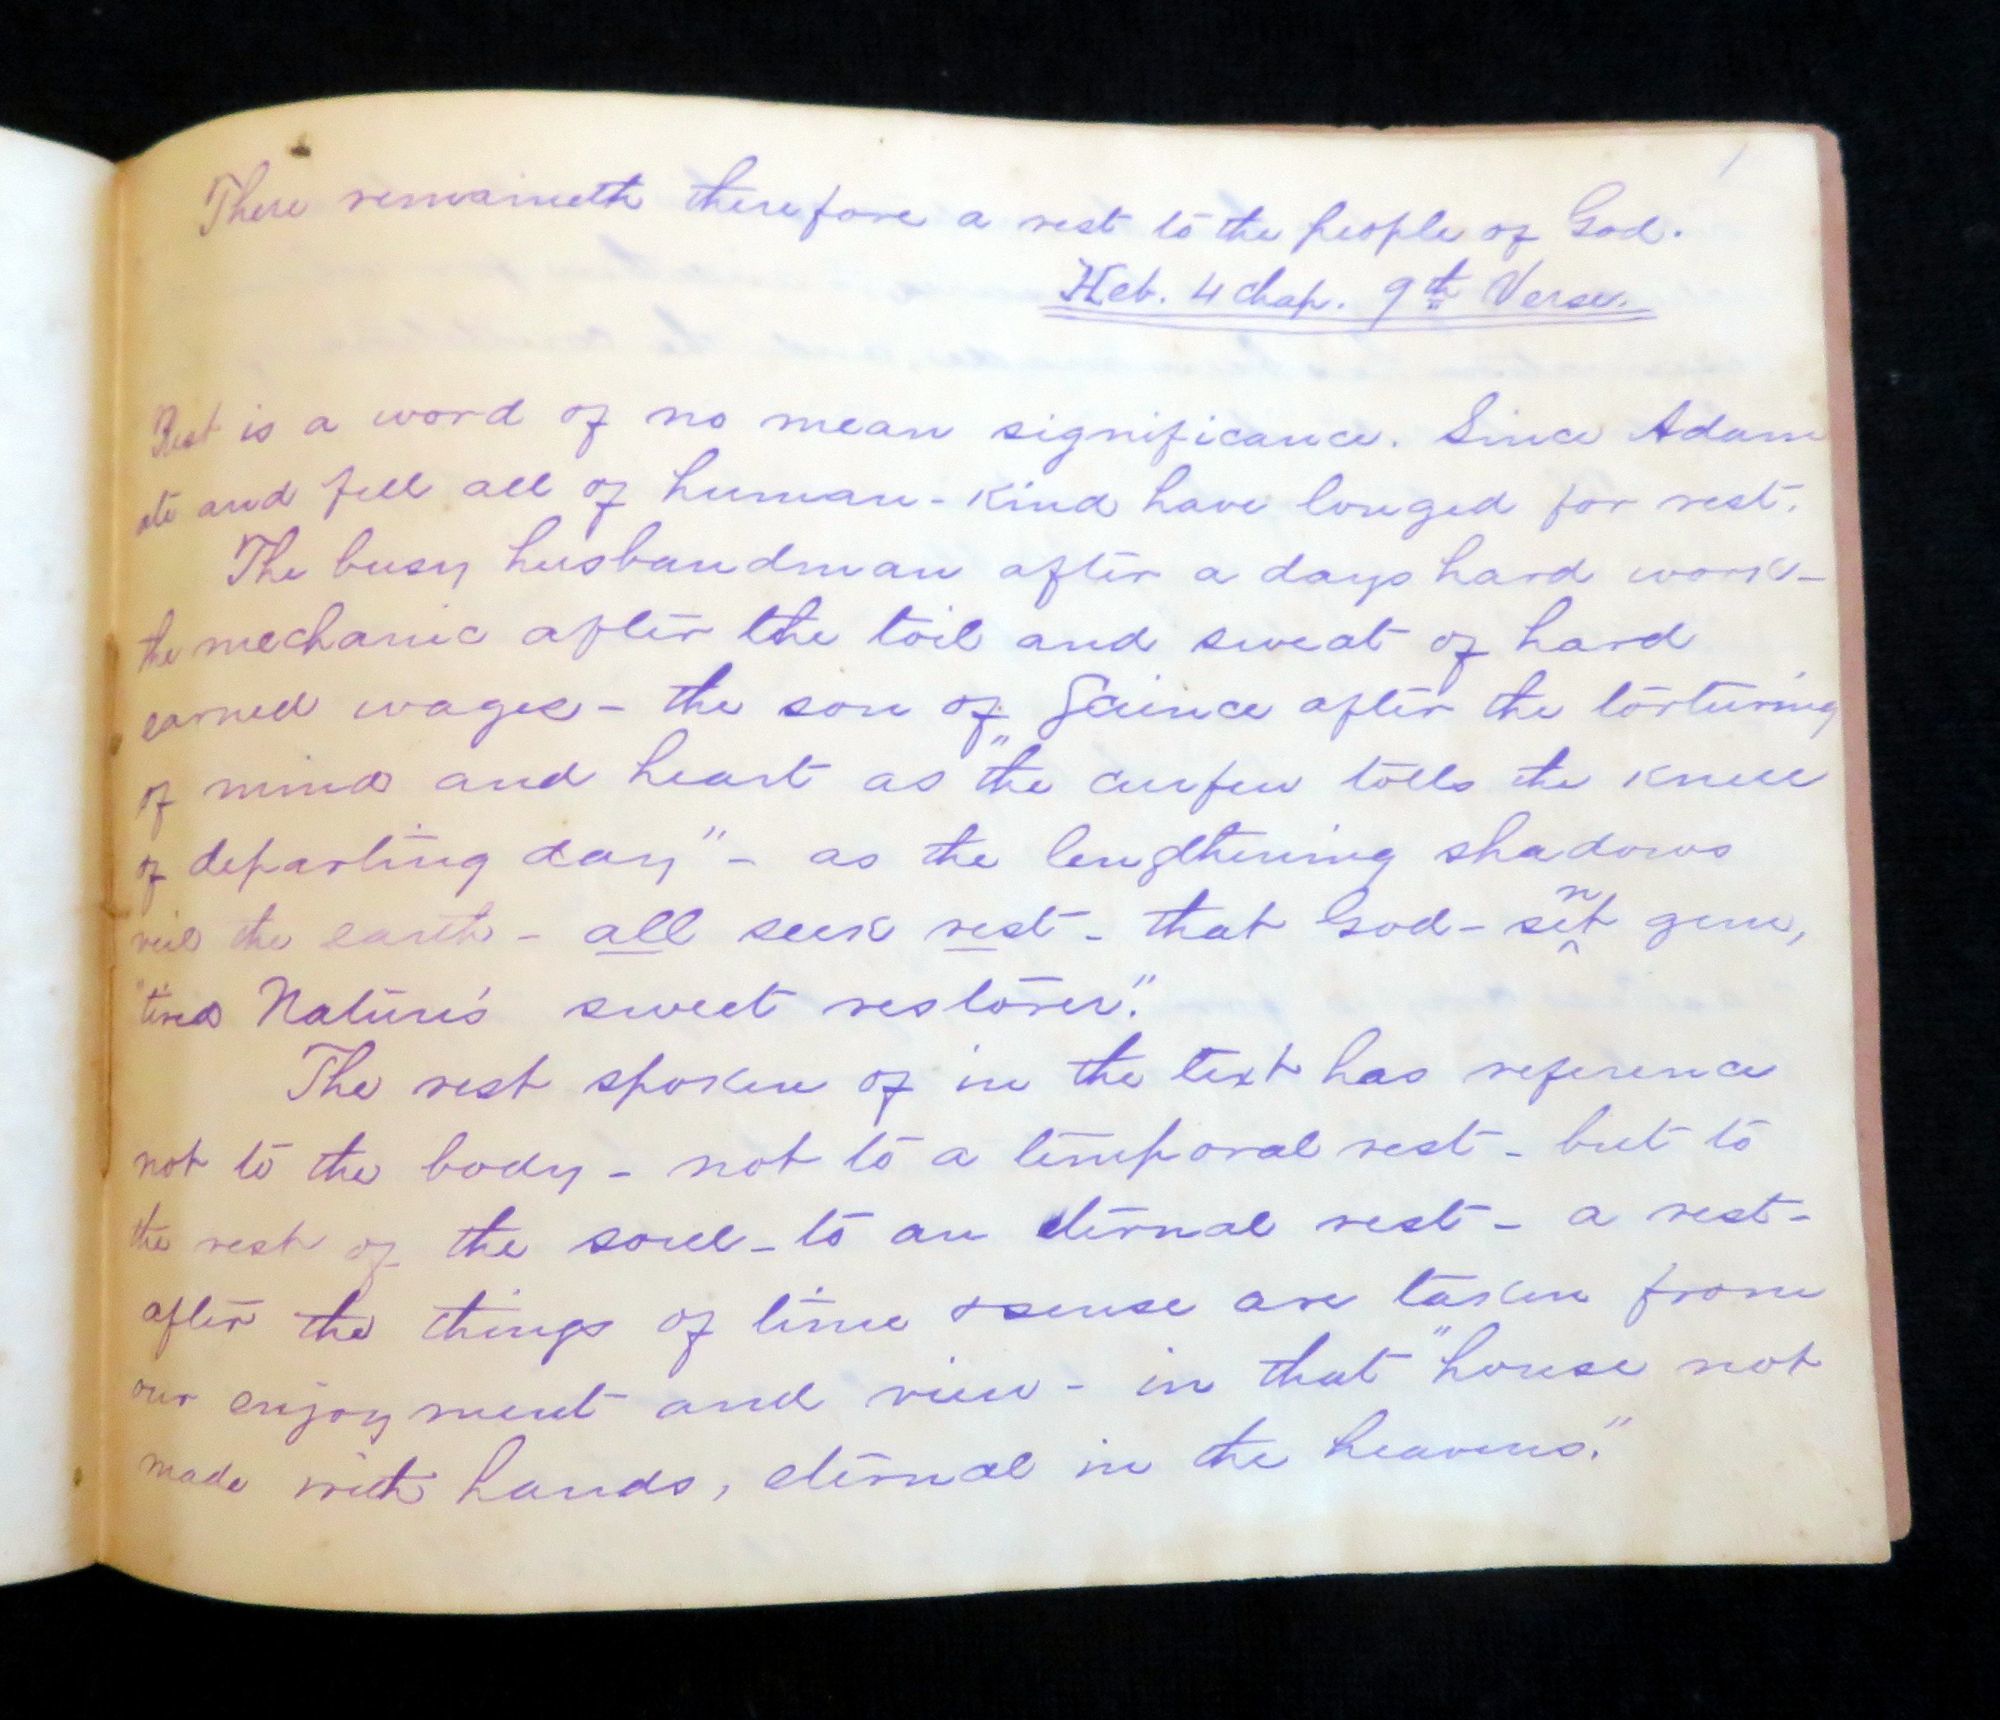 1
There remaineth therefore a rest to the people of God.
Heb. 4 chap. 9th Verse.
Rest is a word of no mean significance. Since Adam
ate and fell all of human-kind have longed for rest.
The busy husbandman after a days hard work-
the mechanic after the toil and sweat of hard
earned wages - the son of Science after the torturing
of mind and heart as "the curfew tolls the knell
of departing day" - as the lengthening shadows
veil the earth - all seek rest - that God-sent gem,
"tired Nature's sweet restorer".
The rest spoken of in the text has reference
not to the body - not to a temporal rest - but to
the rest of the soul - to an eternal rest - a rest -
after the things of time & sense are taken from
our enjoyment and view - in that "house not
made with hands, eternal in the heavens."